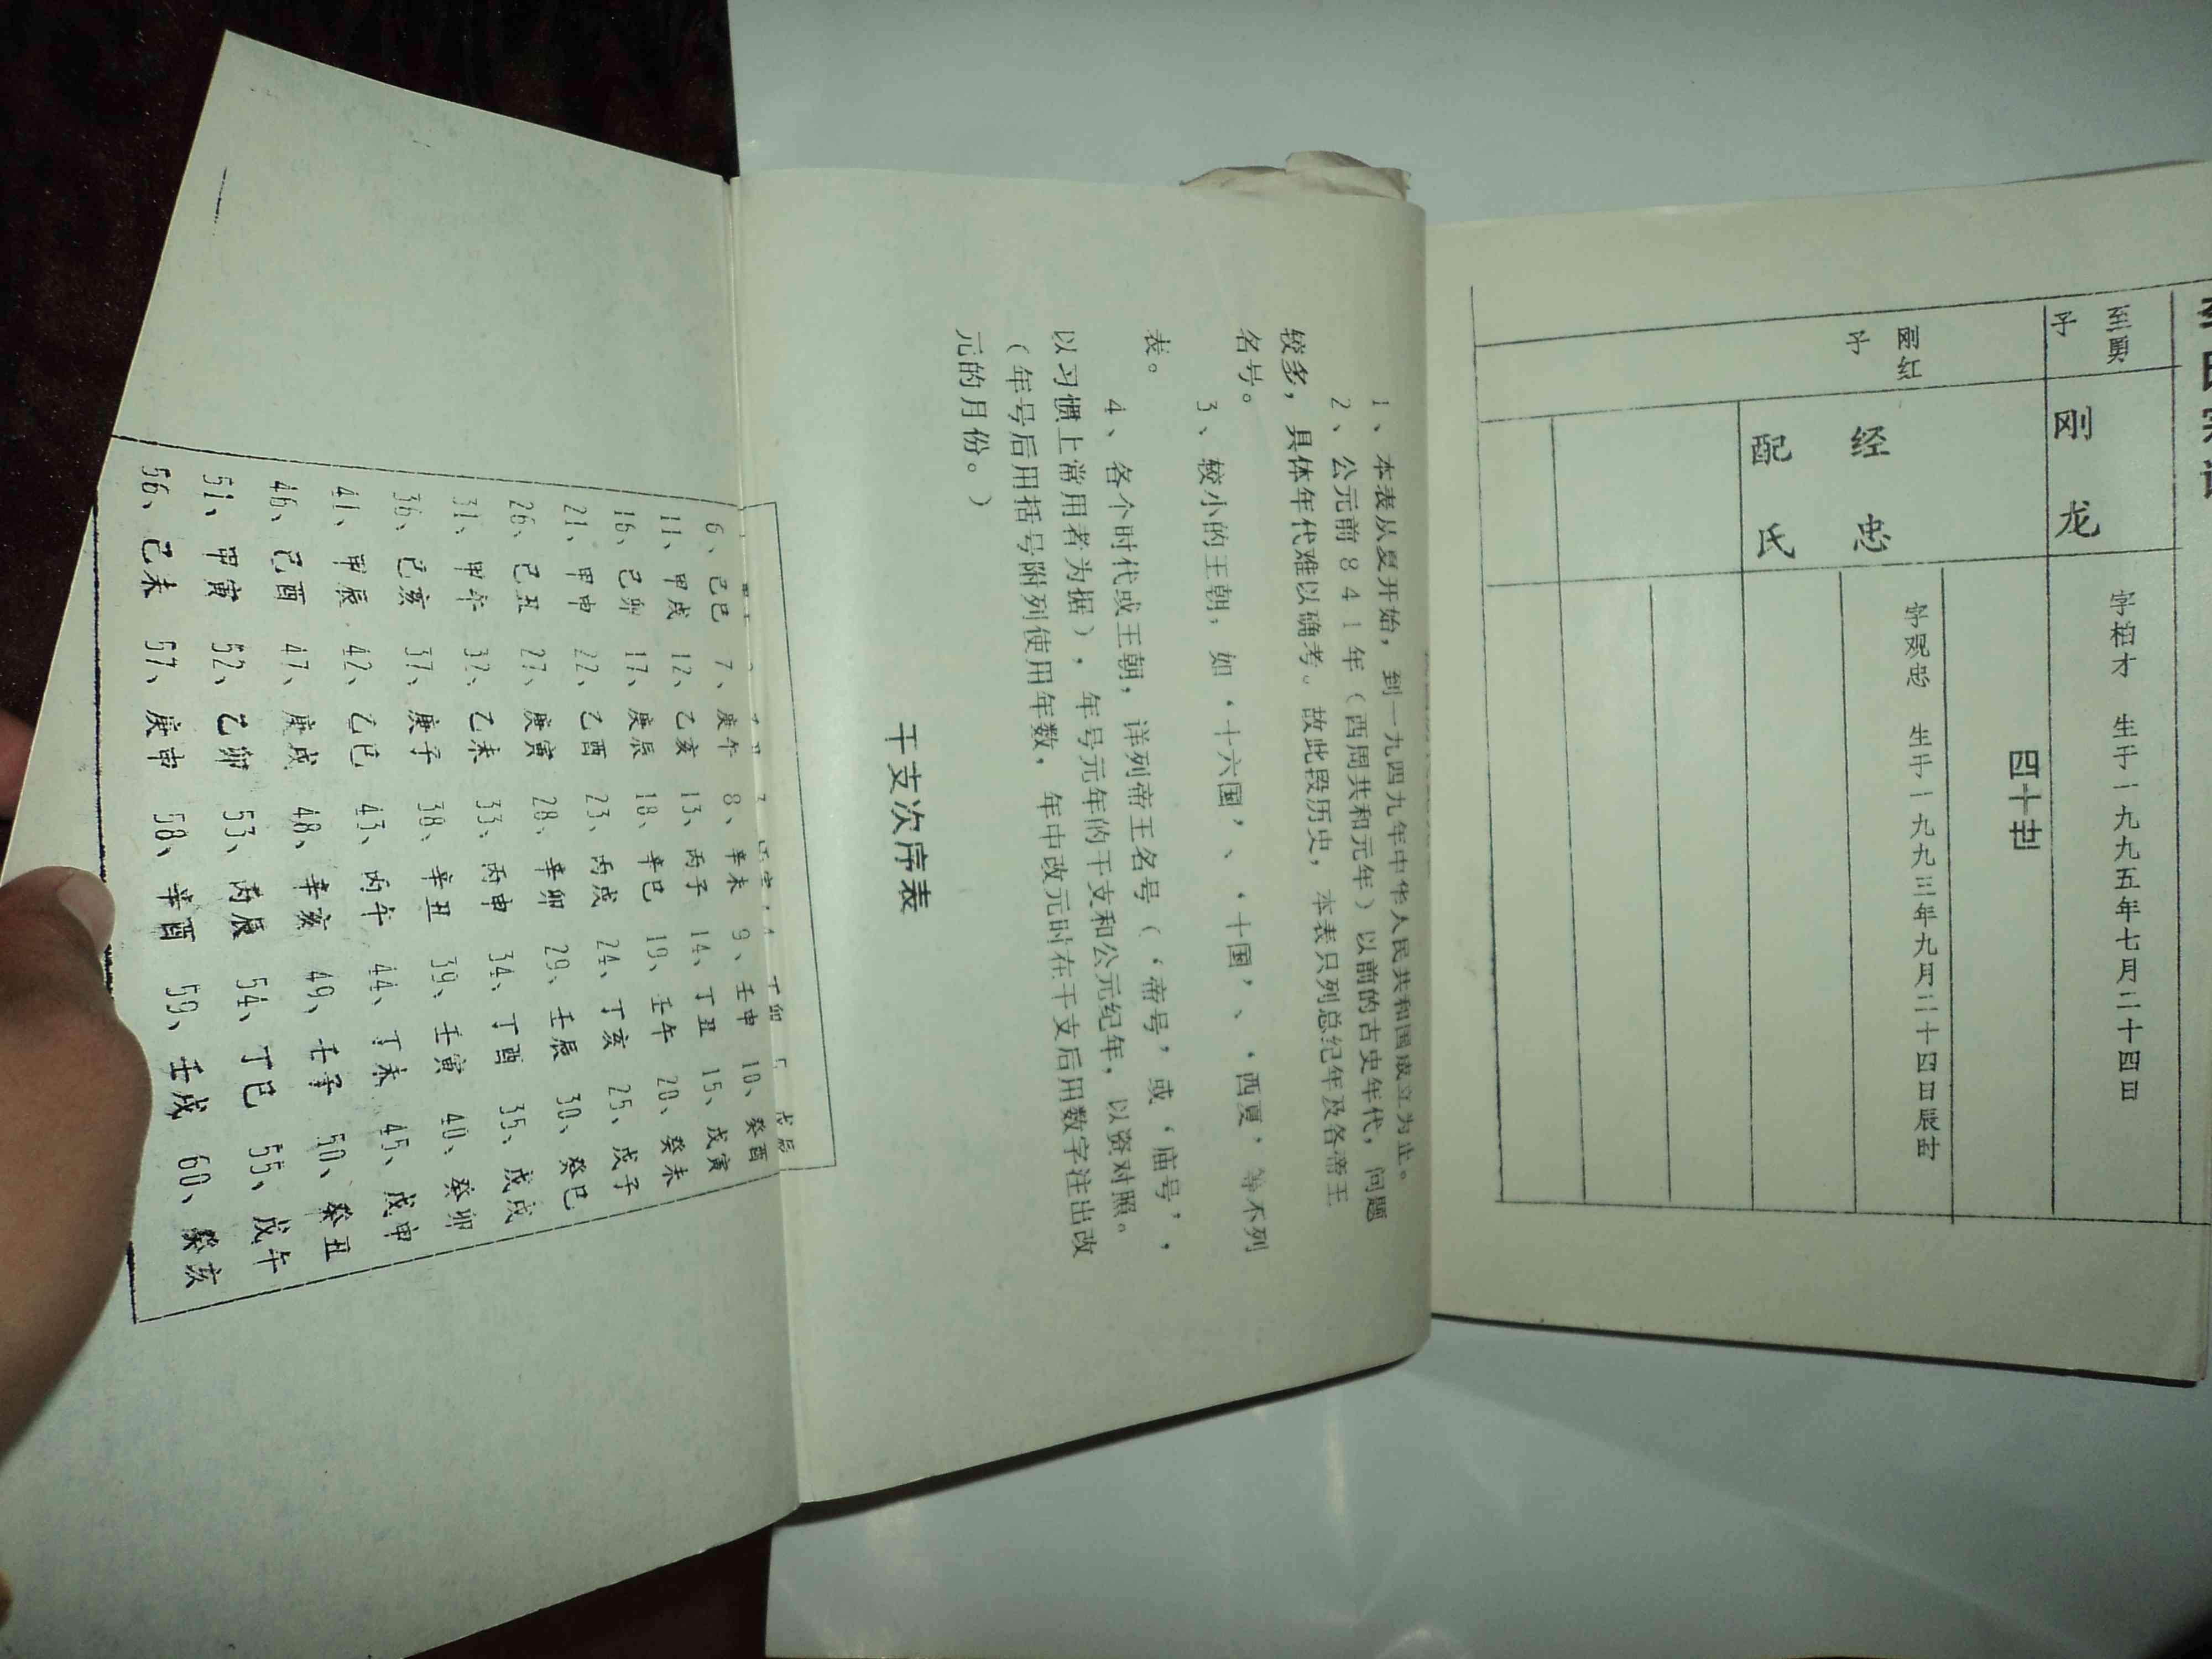 至勇
子
刚龙
字柏才 生于一九九五年七月二十四日
四十世
刚红
子
经忠
字观忠 生于一九九三年九月二十四日辰时
配氏
1、本表从夏开始，到一九四九年中华人民共和国成立为止。
2、公元前841年（西周共和元年）以前的古史年代，问题
较多，具体年代难以确考。故此段历史，本表只列总纪年及各帝王
名号。
3、较小的王朝，如‘十六国’、‘十国’、‘西夏’等不列
表。
4、各个时代或王朝，详列帝王名号（‘帝号’或‘庙号’，
以习惯上常用者为据），年号元年的干支和公元纪年，以资对照。
（年号后用括号附列使用年数，年中改元时在干支后用数字注出改
元的月份。）
干支次序表
丁卯 戊辰
6、己巳 7、庚午 8、辛未 9、壬申 10、癸酉
11、甲戌 12、乙亥 13、丙子 14、丁丑 15、戊寅
16、己卯 17、庚辰 18、辛巳 19、壬午 20、癸未
21、甲申 22、乙酉 23、丙戌 24、丁亥 25、戊子
26、己丑 27、庚寅 28、辛卯 29、壬辰 30、癸巳
31、甲午 32、乙未 33、丙申 34、丁酉 35、戊戌
36、己亥 37、庚子 38、辛丑 39、壬寅 40、癸卯
41、甲辰 42、乙巳 43、丙午 44、丁未 45、戊申
46、己酉 47、庚戌 48、辛亥 49、壬子 50、癸丑
51、甲寅 52、乙卯 53、丙辰 54、丁巳 55、戊午
56、己未 57、庚申 58、辛酉 59、壬戌 60、癸亥